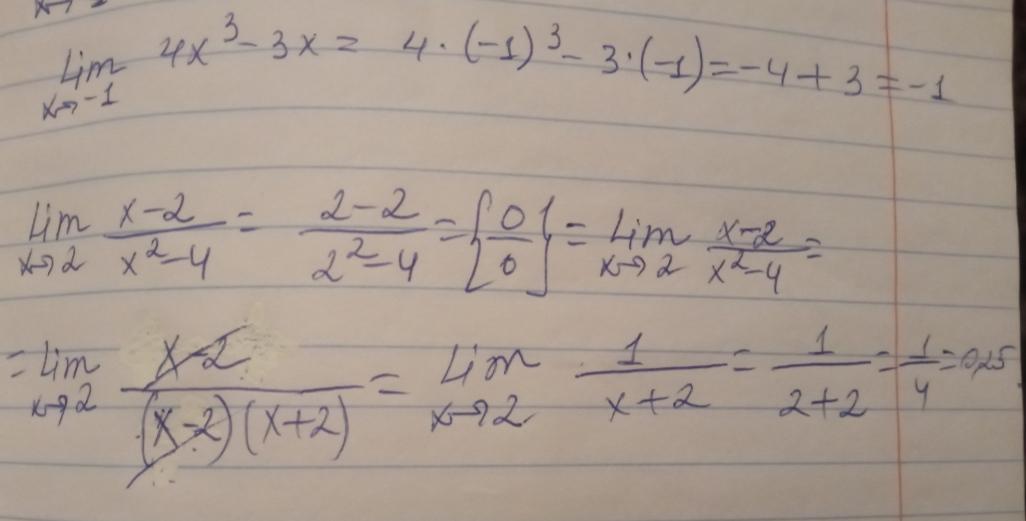 x→2
lim x→-1 4x³ - 3x = 4·(-1)³ - 3·(-1) = -4 + 3 = -1
lim x→2 (x-2)/(x²-4) = (2-2)/(2²-4) = [0/0] = lim x→2 (x-2)/(x²-4) =
= lim x→2 (x-2)/((x-2)(x+2)) = lim x→2 1/(x+2) = 1/(2+2) = 1/4 = 0,25